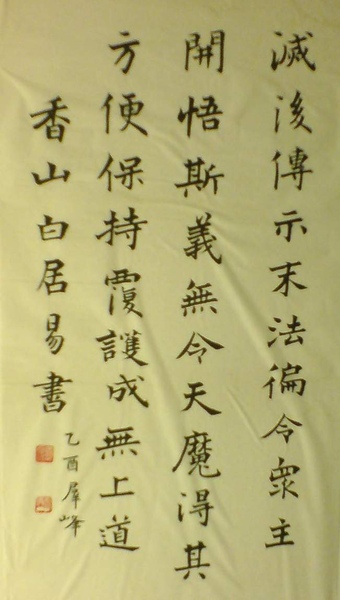 滅後傳示末法徧令衆主
開悟斯義無令天魔得其
方便保持覆護成無上道
香山白居易書
乙酉羣峰